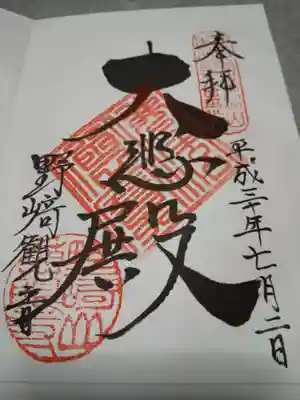 奉拝
平成三十年七月二日
大悲殿
野崎観音